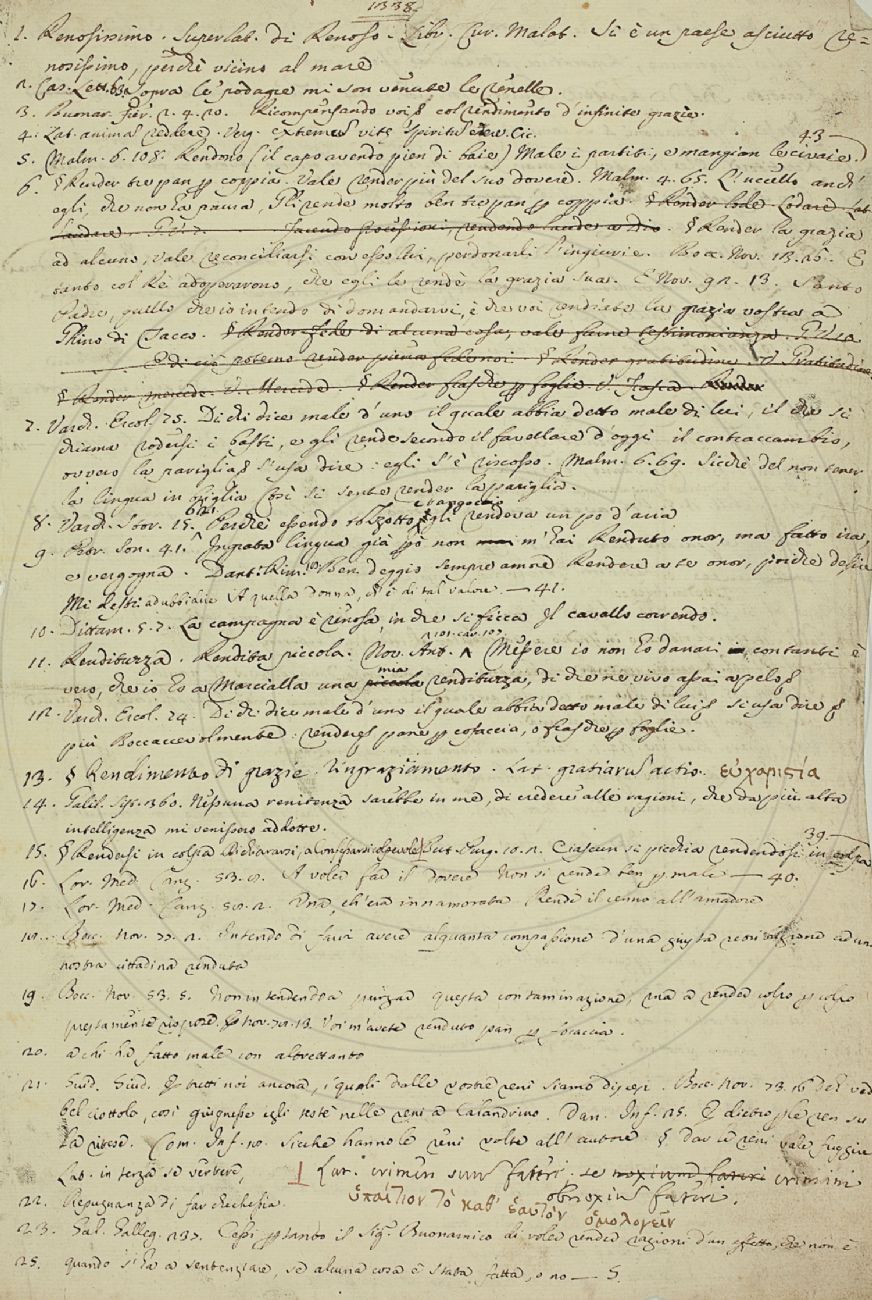 1338
1. Renosissimo. Superlat. di Renoso. Libr. Cur. Malat. Si è un paese asciutto re=
nosissimo, perchè vicino al mare
2. Car. Lett. Sopra le podagre mi son venute le renelle.
3. Buonar. Fier. 2. 4. 20. Ricompensando voi col rendimento d'infinite grazie.
4. Lat. animã reddere. Verg. extremũ vitę spiritũ edere. Cic.
43
5. Malm. 6. 105. Rendono (il capo avendo pien di baie) Male i partiti, e mangian le civaie.
6. § Render tre pan p coppia. Vale render più del suo dovere. Malm. 4. 65. L'uccello andò
egli, che non ha paura, Gli rende molto ben tre pan p coppia. § Render lode. Lodare Lat.
laudare. facendo processioni, rendendo laude a Dio. § Render la grazia
ad alcuno, vale reconciliarsi con esso lui, perdonarli l'ingiurie. Bocc. Nov. 18. 26. E
tanto col Rè adoperarono, che egli le rendè la grazia sua. E Nov. 92. 13. Santo
Padre, quello che io intendo di domandarvi, è che voi rendiate la grazia vostra a
Ghino di Tacco. § Render fede di alcuna cosa, vale farne testimonianza.
E di ciò potemo render piena fede noi. § Render gratitudine. V. Gratitudine
§ Render mercede. V. Mercede. § Render frasche p foglie. V. Frasca. Render
7. Varch. Ercol. 75. Di chi dice male d'uno il quale abbia detto male di lui, il che si
chiama rodersi i basti, e gli rende secondo il favellare d'oggi il contraccambio,
ovvero la pariglia s'usa dire: egli s'è riscosso. Malm. 6. 69. Sicchè del non tener
la lingua in briglia Così si sente render la pariglia.
8. Varch. Stor. 15. 621. Perchè essendo rbizzotto egli rendeva un po d'aria
9. Petr. Son. 41. Ingrata lingua già p ò non m'hai Renduto onor, ma fatto ira,
e vergogna. Dant. Rim. 10. Ben deggio sempre amore Rendere a te onor, poichè desire
Mi desti ad ubbidire A quella donna, ch'è di tal valore. — 41.
10. Dittam. 5. 7. La campagna è renosa, in che si ficca Il cavallo correndo.
11. Rendituzza. Rendita piccola. Nov. Ant. 101. car. 107. Messere io non ho danari in contanti è
vero, che io ho a Marcialla una piccola mia rendituzza, di che ne vivo assai a pelo
12. Varch. Ercol. 24. Di chi dice male d'uno il quale abbia detto male di lui si usa dire
più Boccaccevolmente: render pane p cofaccia, o frasche p foglie.
13. § Rendimento di grazie. Ringraziamento. Lat. gratiarũ actio. εὐχαριστία
14. Galil. Sist. 360. Nissuna renitenza sarebbe in me, di credere alle ragioni, che da più alta
intelligenza mi venissero addotte.
39
15. § Rendersi in colpa Dichiararsi, o confessarsi colpevole But. Purg. 10. 2. Ciascun se picchia rendendosi in colpa
16. Lor. Med. Canz. 53. 9. A voler far il dovere Non si rende ben p male — 40.
17. Lor. Med. Canz. 50. 2. Una, ch'era innamorata Rendè il cenno all'amadore
18. Bocc. Nov. 77. 2. Intendo di farvi avere alquanta compassione d'una giusta retribuzione ad una
nostra cittadina renduta
19. Bocc. Nov. 53. 5. Non intendendo a purgar questa contaminazione, ma a render colpo p colpo
prestamente rispose. Nov. 78. 13. Voi m'avete renduto pan p focaccia.
20. a chi ha fatto male con altrettanto
21. Guid. Giud. E tutti noi ancora, i quali dalle vostre reni siamo discesi. Bocc. Nov. 73. 16 Deh ved
bel ciottolo, così giugnesse egli testè nelle reni a Calandrino. Dan. Inf. 25. E dietro p le ren su
la ritese. Com. Inf. 20. Sicchè hanno le reni volte all'autore. § Dar le reni vale fuggire
Lat. in terga se vertere, Lat. crimen suũ fateri. se noxium fateri crimini
obnoxiũ fateri.
22. Repugnanza di far checchesia. ὑπαίτιον τὸ καθ' ἑαυτὸν ὁμολογεῖν
23. Gal. Galleg. 237. Cessi p tanto il Sig. Buonamico di voler render ragioni d'un effetto, che non è
25. quando s'ha a sentenziare, se alcuna cosa è stata fatta, o no — 5.